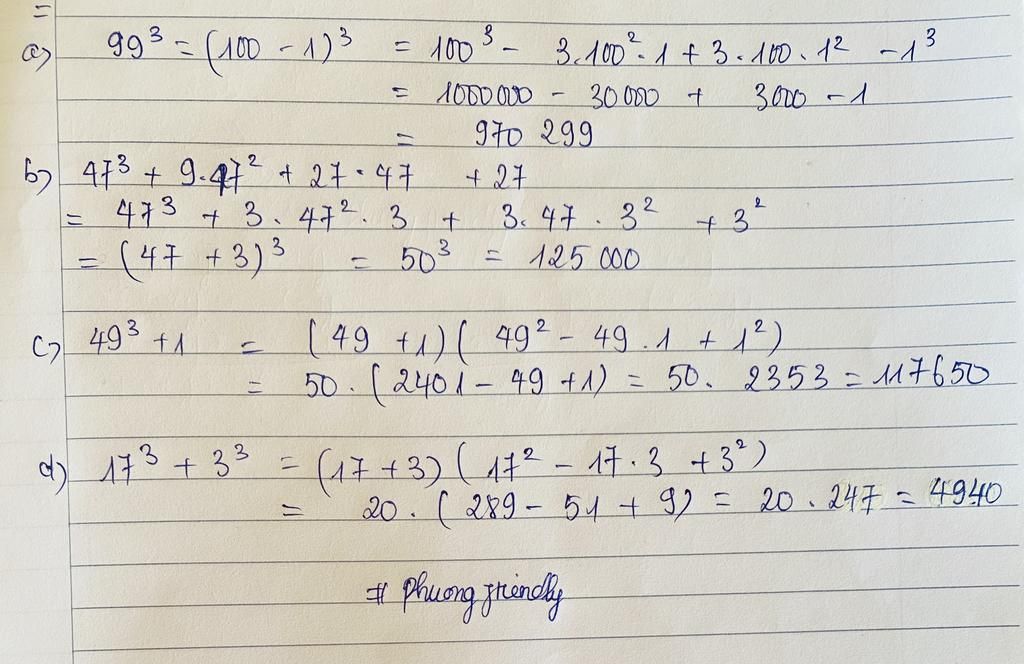 =
a) 99³ = (100 - 1)³ = 100³ - 3.100².1 + 3.100.1² - 1³
= 1000000 - 30000 + 3000 - 1
= 970 299
b) 47³ + 9.47² + 27.47 + 27
= 47³ + 3.47².3 + 3.47.3² + 3²
= (47 + 3)³ = 50³ = 125 000
c) 49³ + 1 = (49 + 1)(49² - 49.1 + 1²)
= 50.(2401 - 49 + 1) = 50.2353 = 117650
d) 17³ + 3³ = (17 + 3)(17² - 17.3 + 3²)
= 20.(289 - 51 + 9) = 20.247 = 4940
# phuong friendly